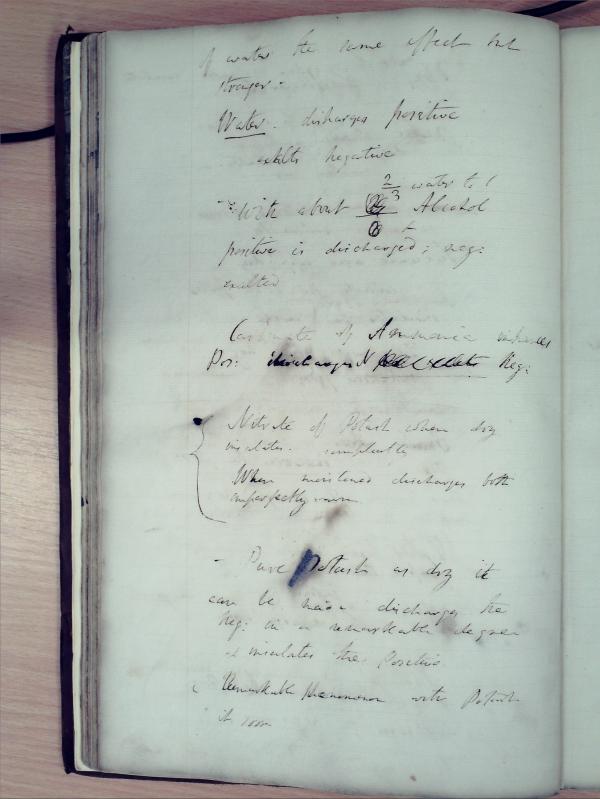 of water the same effect but
stronger -
Water. discharges positive
exalts negative
2 water to 1
With about 3 Alcohol
positive is discharged; neg:
exalted
Carbonate of Ammonia
Pos: discharges Neg:
Nitrate of Potash when dry
insulates. completely
When moistened discharges both
imperfectly
- Pure Potash as dry it
can be made discharges the
Neg: in a remarkable degree
& insulates the Positive
Remarkable phenomenon with Potash
it soon